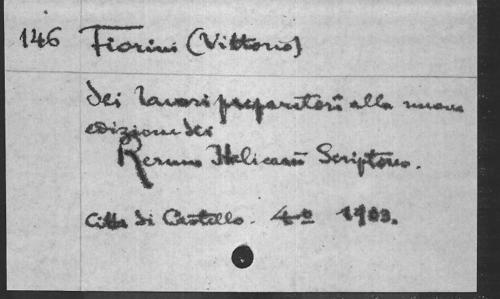 146 Fiorini (Vittorio)
Dei lavori preparatori alla nuova
edizione dei
Rerum Italicarum Scriptores.
Città di Castello. 4º 1903.